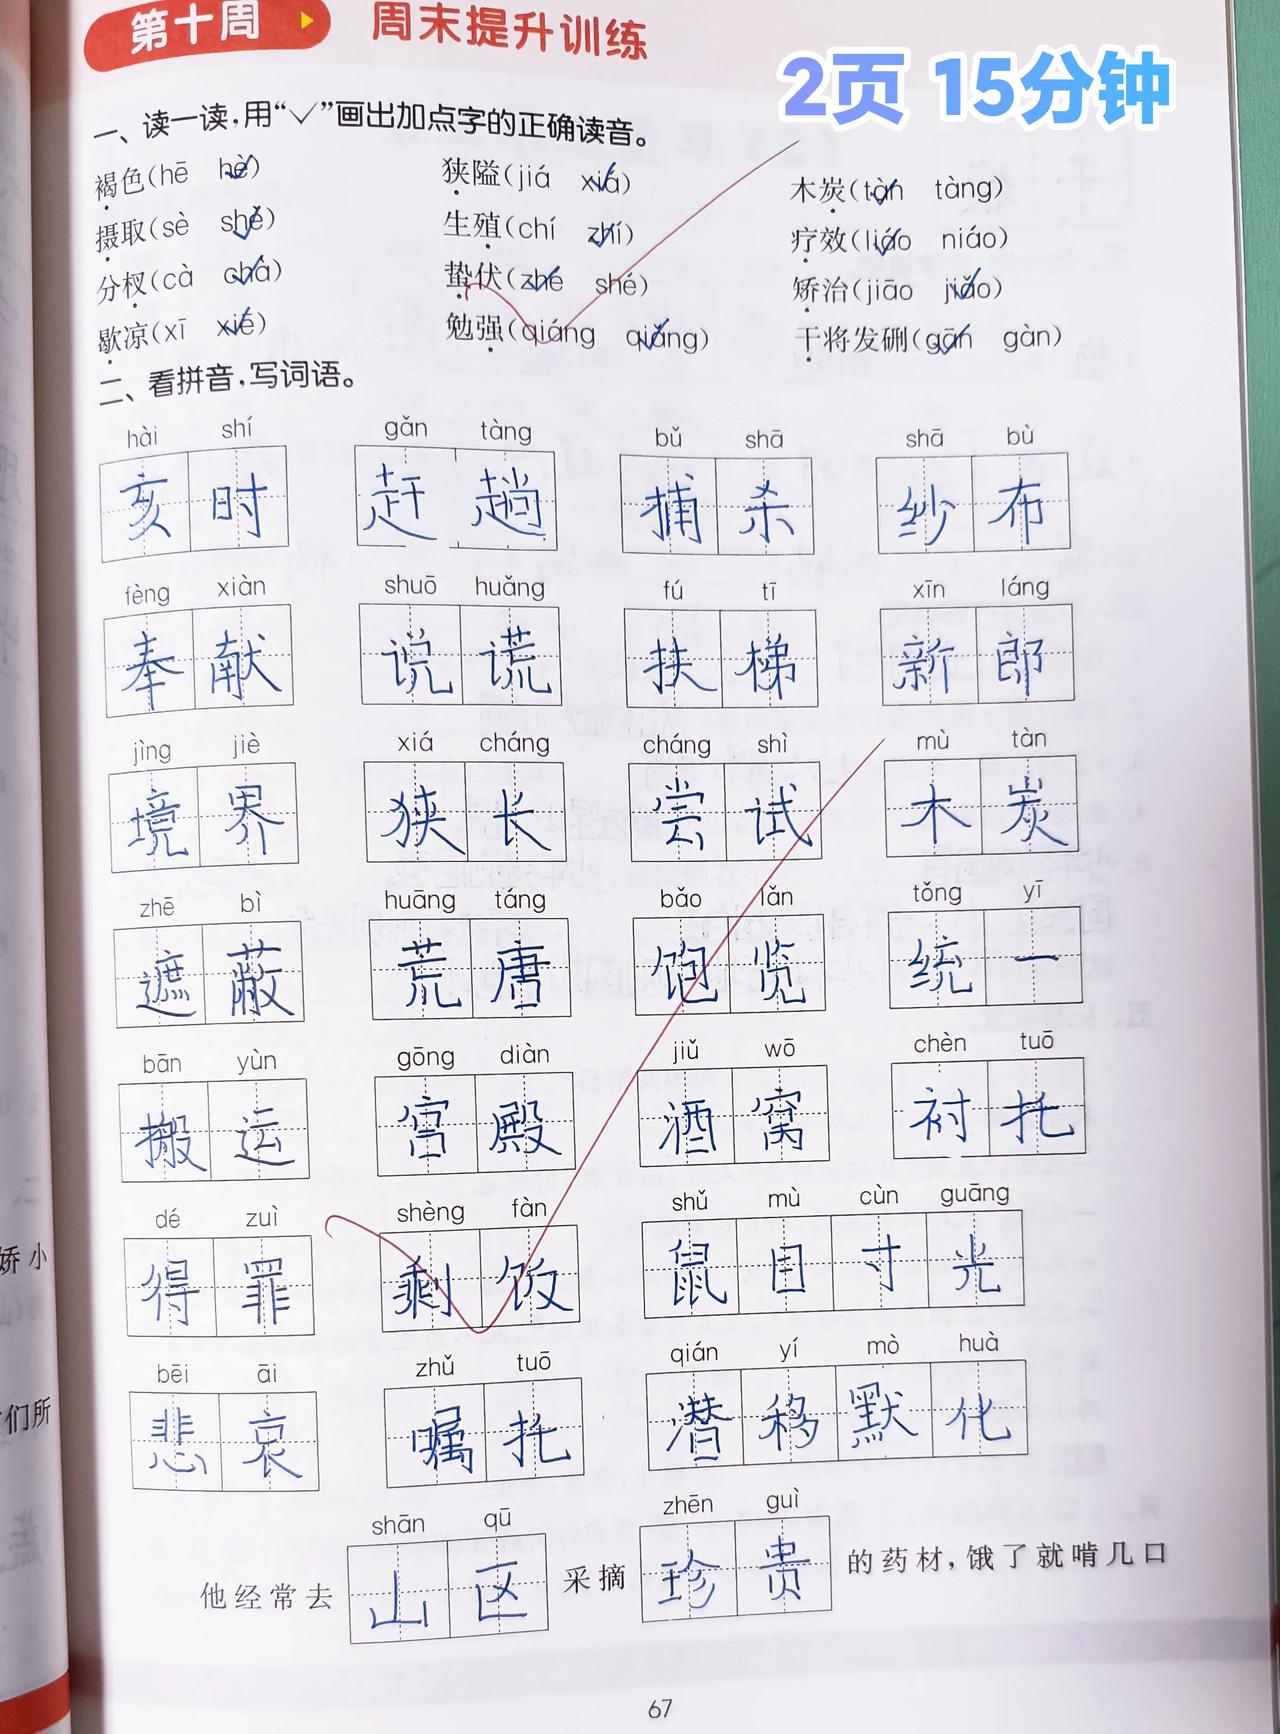 第十周 周末提升训练
2页 15分钟
一、读一读,用“✓”画出加点字的正确读音。
褐色(hē hè) 狭隘(jiá xiá) 木炭(tàn tàng)
摄取(sè shè) 生殖(chí zhí) 疗效(liáo niáo)
分杈(cà chà) 蛰伏(zhé shé) 矫治(jiāo jiǎo)
歇凉(xī xiē) 勉强(qiáng qiǎng) 干将发硎(gān gàn)
二、看拼音,写词语。
hài shí gǎn tàng bǔ shā shā bù
亥时 赶趟 捕杀 纱布
fèng xiàn shuō huǎng fú tī xīn láng
奉献 说谎 扶梯 新郎
jìng jiè xiá cháng cháng shì mù tàn
境界 狭长 尝试 木炭
zhē bì huāng táng bǎo lǎn tǒng yī
遮蔽 荒唐 饱览 统一
bān yùn gōng diàn jiǔ wō chèn tuō
搬运 宫殿 酒窝 衬托
dé zuì shèng fàn shǔ mù cùn guāng
得罪 剩饭 鼠目寸光
bēi āi zhǔ tuō qián yí mò huà
悲哀 嘱托 潜移默化
shān qū zhēn guì
他经常去 山区 采摘 珍贵 的药材,饿了就啃几口
67
娇小
们所